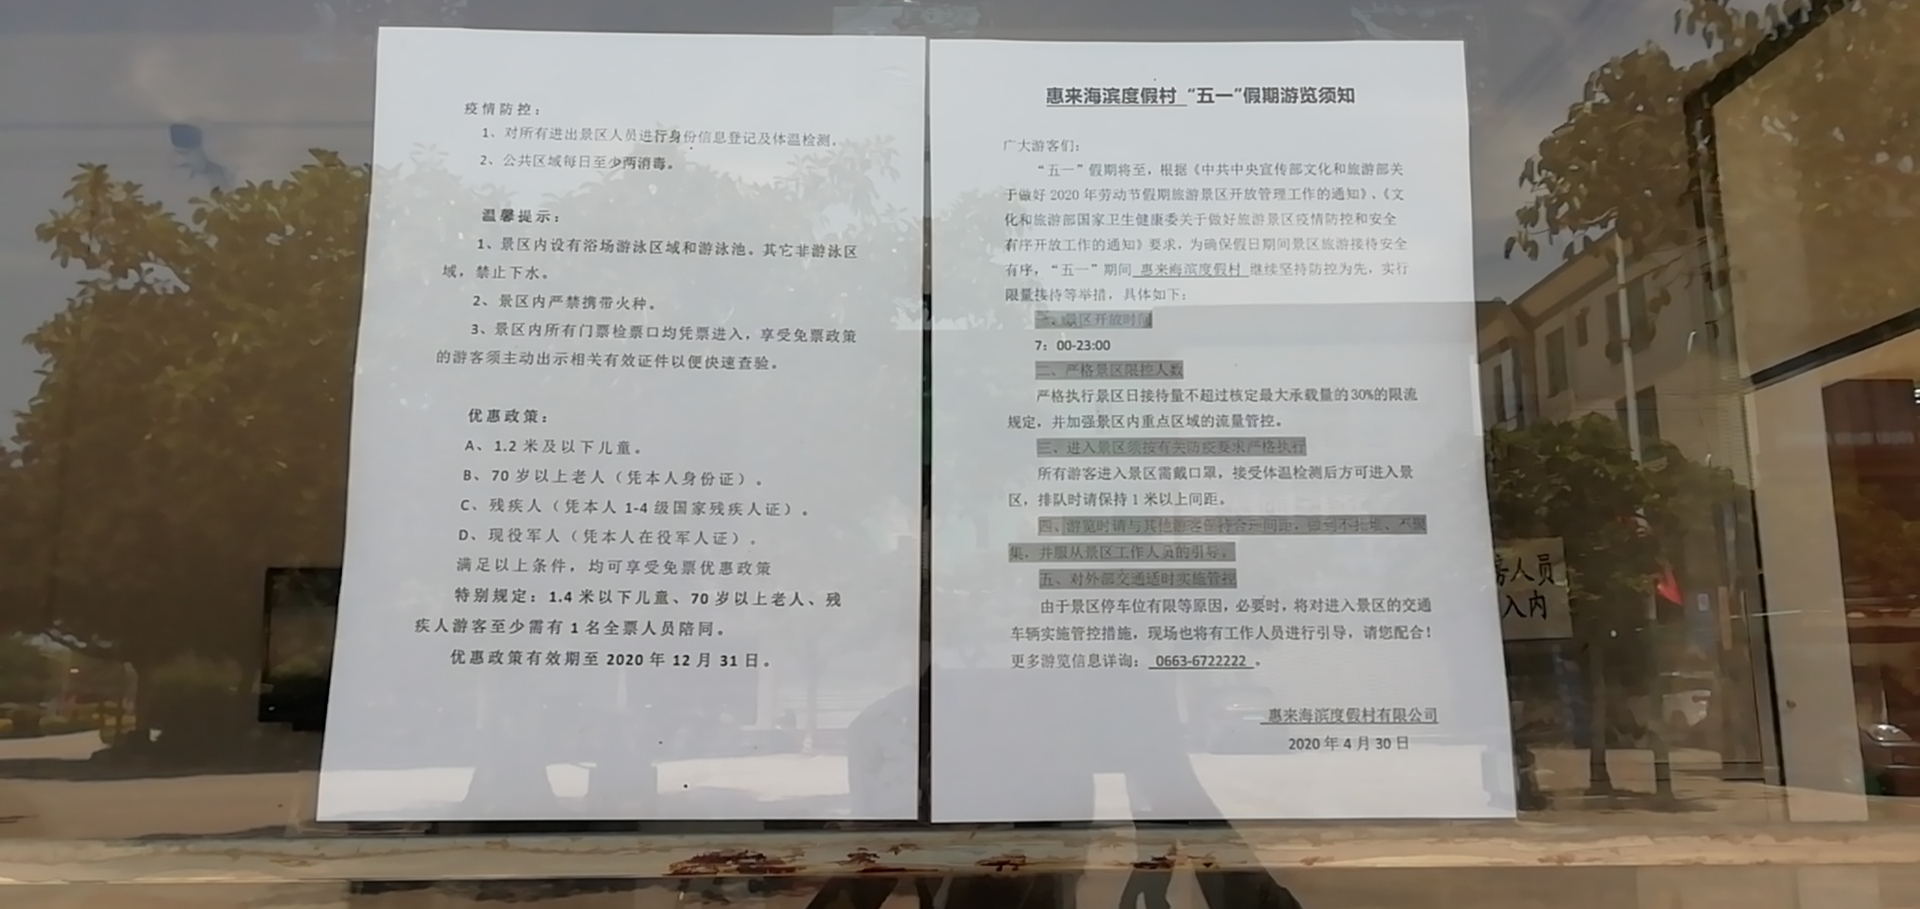 疫情防控：
1、对所有进出景区人员进行身份信息登记及体温检测。
2、公共区域每日至少两消毒。
温馨提示：
1、景区内设有浴场游泳区域和游泳池。其它非游泳区
域，禁止下水。
2、景区内严禁携带火种。
3、景区内所有门票检票口均凭票进入，享受免票政策
的游客须主动出示相关有效证件以便快速查验。
优惠政策：
A、1.2 米及以下儿童。
B、70 岁以上老人（凭本人身份证）。
C、残疾人（凭本人 1-4 级国家残疾人证）。
D、现役军人（凭本人在役军人证）。
满足以上条件，均可享受免票优惠政策
特别规定：1.4 米以下儿童、70 岁以上老人、残
疾人游客至少需有 1 名全票人员陪同。
优惠政策有效期至 2020 年 12 月 31 日。
惠来海滨度假村 “五一”假期游览须知
广大游客们：
“五一”假期将至，根据《中共中央宣传部文化和旅游部关
于做好 2020 年劳动节假期旅游景区开放管理工作的通知》、《文
化和旅游部国家卫生健康委关于做好旅游景区疫情防控和安全
有序开放工作的通知》要求，为确保假日期间景区旅游接待安全
有序，“五一”期间 惠来海滨度假村 继续坚持防控为先，实行
限量接待等举措，具体如下：
一、景区开放时间
7：00-23:00
二、严格景区限控人数
严格执行景区日接待量不超过核定最大承载量的 30%的限流
规定，并加强景区内重点区域的流量管控。
三、进入景区须按有关防疫要求严格执行
所有游客进入景区需戴口罩，接受体温检测后方可进入景
区，排队时请保持 1 米以上间距。
四、游览时请与其他游客保持合理间距，做到不扎堆、不聚
集，并服从景区工作人员的引导。
五、对外部交通适时实施管控
由于景区停车位有限等原因，必要时，将对进入景区的交通
车辆实施管控措施，现场也将有工作人员进行引导，请您配合！
更多游览信息详询： 0663-6722222 。
惠来海滨度假村有限公司
2020 年 4 月 30 日
人员
入内